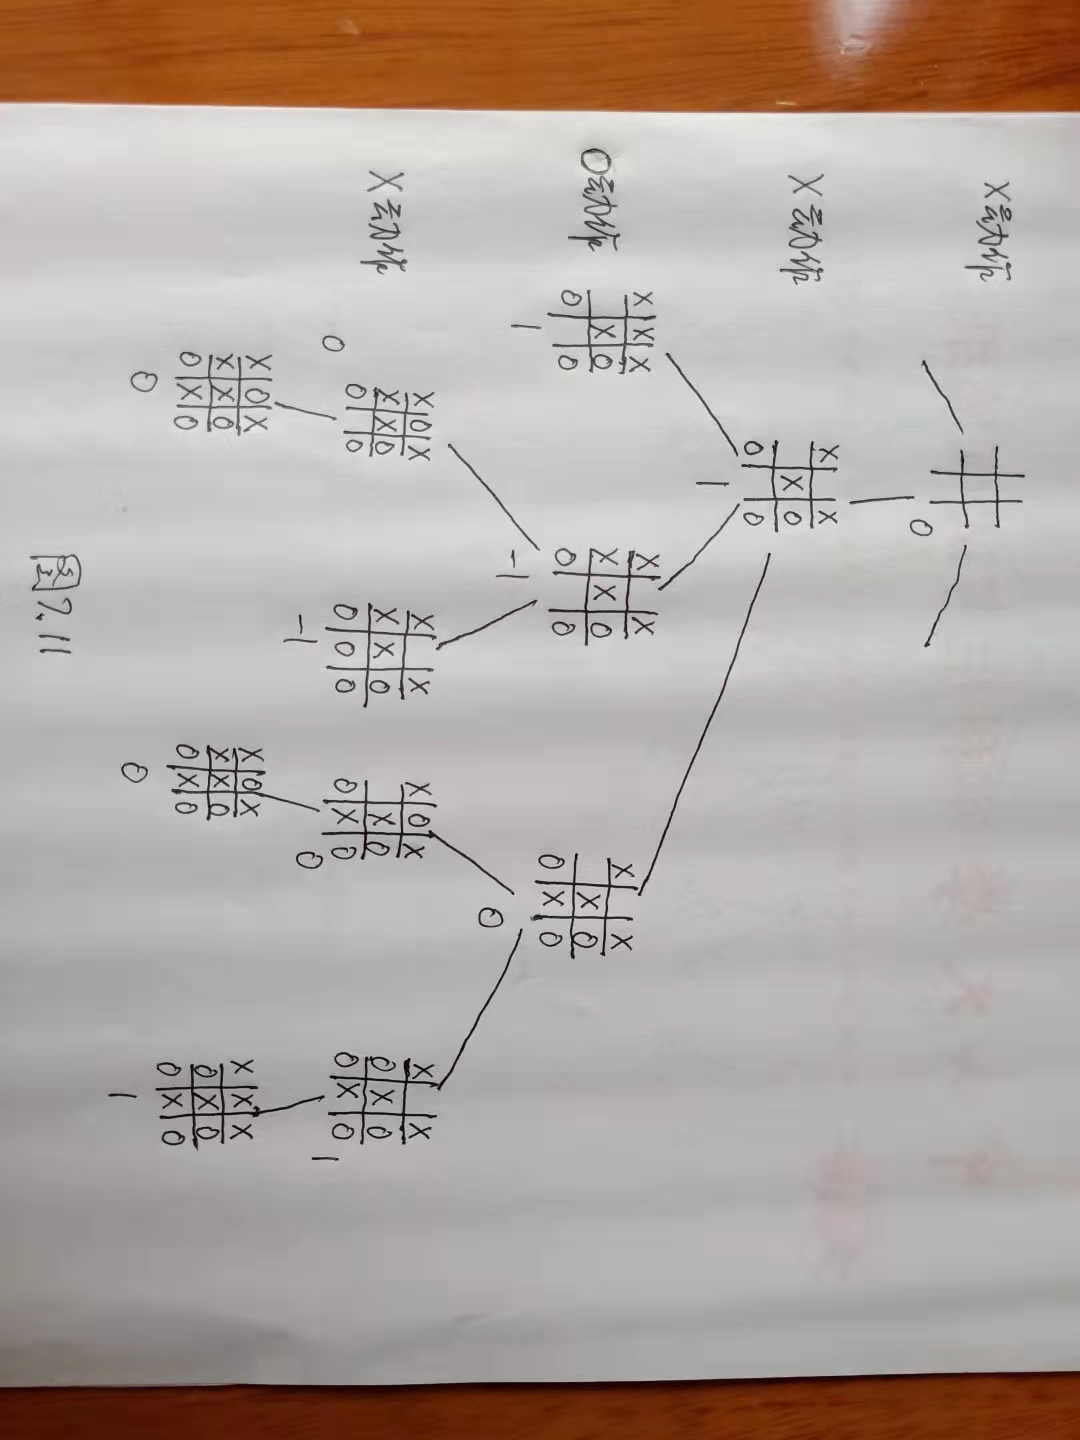 X动作
0
X动作
X X
X O
O O
1
O动作
X X X
X O
O O
1
X X
X X O
O O
-1
X X
X O
O X O
0
X动作
X O X
X X O
O O
0
X X
X X O
O O O
-1
X O X
X O
O X O
0
X X
O X O
O X O
1
X O X
X X O
O X O
0
X O X
X X O
O X O
0
X X X
O X O
O X O
1
图7.11